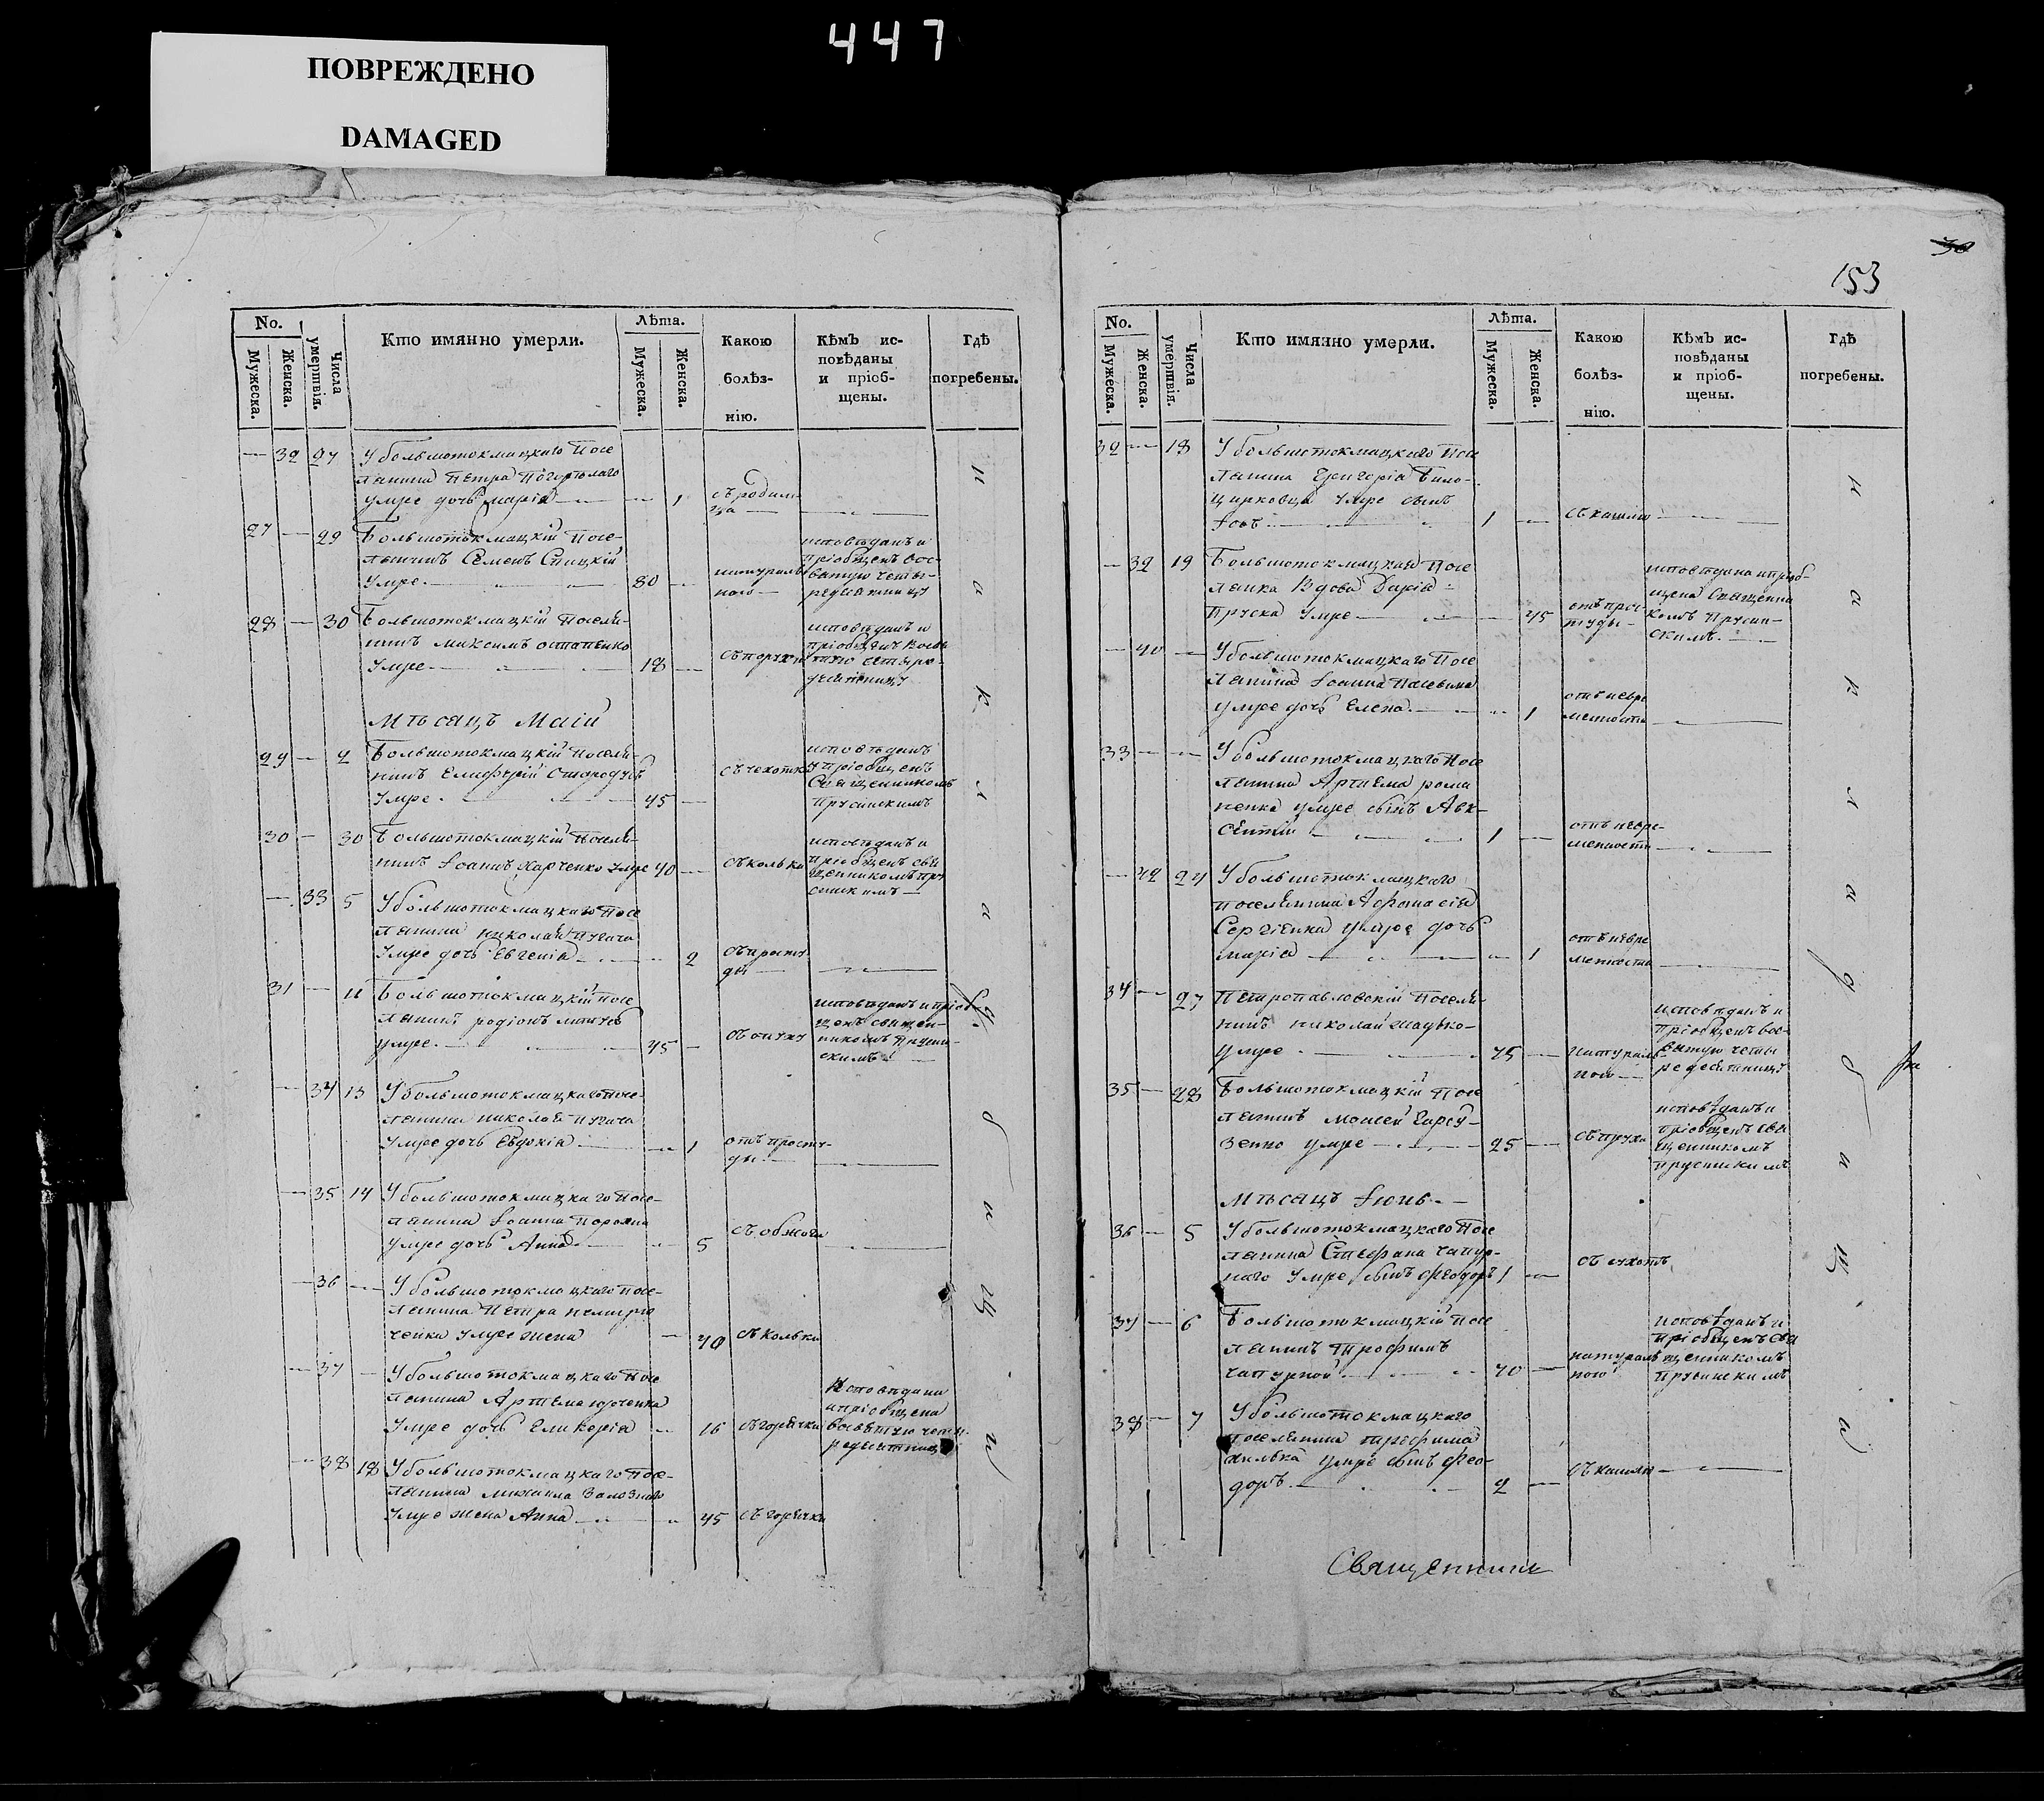 447
ПОВРЕЖДЕНО
DAMAGED
No.
Мужеска.
Женска.
Числа умертвія.
Кто имянно умерли.
Лѣта.
Мужеска.
Женска.
Какою болѣз-
нію.
Кѣмъ ис-
повѣданы
и пріоб-
щены.
Гдѣ
погребены.
— 32 27 У большотокмацкаго посе
лянина Петра
умре дочь марія — 1 съ родим
ца
27 — 29 Большотокмацкій посе-
лянинъ Семенъ Спицкій
умре. 80 — натураль
ною
исповѣданъ и
пріобщенъ
28 — 30 Большотокмацкій поселя-
нинъ максимъ остапенко
умре 18 —
исповѣданъ и
пріобщенъ
Мѣсяцъ Маіи
29 — 2 Большотокмацкій поселя-
нинъ Елифѣрій
умре. 45 — съ чехотки
исповѣданъ
и пріобщенъ
Священникомъ
Прусинскимъ
30 — 30 Большотокмацкій поселя-
нинъ Іоаннъ Харченко умре 40 — съ кольки
исповѣданъ и
пріобщенъ свя
щенникомъ пру
синскимъ
— 33 5 У большотокмацкаго посе
лянина николая пугача
умре дочь Евгенія 2 съ просту
ды
31 — 11 Большотокмацкій посе
лянинъ родіонъ
умре. 45 — съ опуху
исповѣданъ и пріоб
щенъ священ-
никомъ Прусин-
скимъ
— 34 13 У большотокмацкаго посе-
лянина николая пугача
умре дочь Евдокія 1 отъ просту-
ды
— 35 14 У большотокмацкаго посе-
лянина Іоанна
умре дочь Анна 5
— 36 — У большотокмацкаго посе-
лянина Петра немиро
ченка умре жена — 40 съ кольки
— 37 — У большотокмацкаго посе
лянина Артема
умре дочь Гликерія 16 съ горячки
Исповѣдана
и пріобщена
— 38 18 У большотокмацкаго посе-
лянина михаила
умре жена Анна 45 съ горячки
на кладбищи
30
153
No.
Мужеска.
Женска.
Числа умертвія.
Кто имянно умерли.
Лѣта.
Мужеска.
Женска.
Какою
болѣз-
нію.
Кѣмъ ис-
повѣданы
и пріоб-
щены.
Гдѣ
погребены.
32 — 18 У большотокмацкаго посе
лянина Григорія Било-
церковца умре сынъ
Іовъ 1 — съ кашлю
— 39 19 Большотокмацкая посе
лянка Вдова Дарія
Пруска умре — 45 отъ прос-
туды
исповѣдана и пріоб-
щена Священни
комъ Прусин-
скимъ
— 40 — У большотокмацкаго посе
лянина Іоанна
умре дочь Елена. 1 отъ невре
менности
33 — — У большотокмацкаго посе
лянина Артема рома
ненка умре сынъ Авк-
сентій 1 — отъ невре-
менности
— 42 24 У большотокмацкаго
поселянина Афанасія
Сергіенка умре дочь
марія 1 отъ невре
менности
34 — 27 Петропавловскій поселя-
нинъ николай
умре 75 — натураль-
ною
исповѣданъ и
пріобщенъ
35 — 28 Большотокмацкій посе
лянинъ Моисей
умре 25 —
исповѣданъ и
пріобщенъ свя
щенникомъ
прусинскимъ
Мѣсяцъ Іюнь.
36 — 5 У большотокмацкаго посе
лянина Стефана чапур-
наго умре сынъ Феодоръ 1 — съ сухотъ
37 — 6 Большотокмацкій посе
лянинъ Трофимъ
чапурной 70 — натураль
ною
исповѣданъ и
пріобщенъ свя
щенникомъ
прусинскимъ
38 — 7 У большотокмацкаго
поселянина трофима
умре сынъ Фео-
доръ. 2 — съ кашлю
на кладбищи
Священникъ